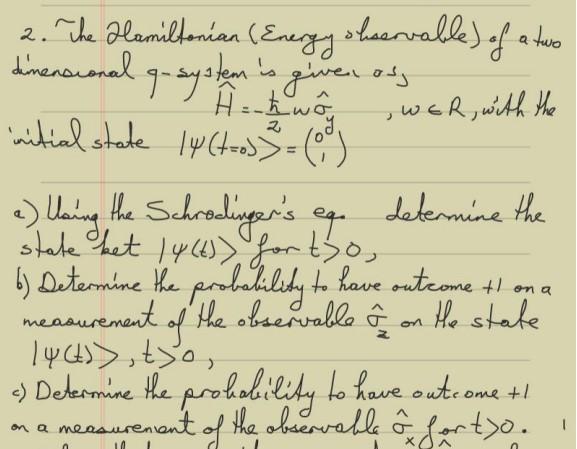 2. The Hamiltonian (Energy observable) of a two
dimensional q-system is given as,
Ĥ = -ħ/2 w σ̂y , w ∈ R, with the
initial state |ψ(t=0)> = (0 1)
a) Using the Schrodinger's eq. determine the
state ket |ψ(t)> for t>0,
b) Determine the probability to have outcome +1 on a
measurement of the observable σ̂z on the state
|ψ(t)>, t>0,
c) Determine the probability to have outcome +1
on a measurement of the observable σ̂x for t>0.